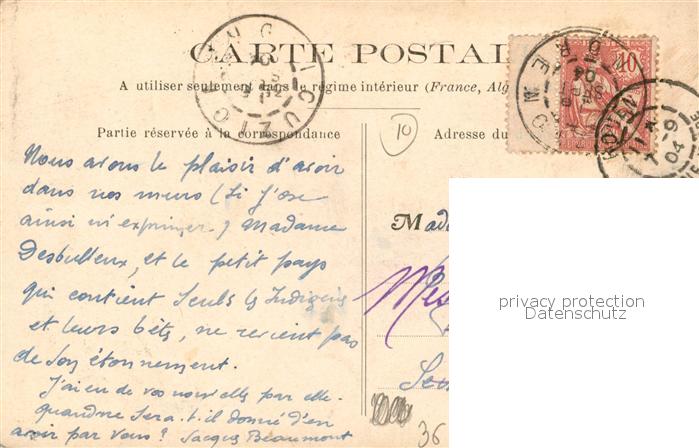 CARTE POSTAL
A utiliser seulement dans le régime intérieur (France, Alg
Partie réservée à la correspondance
Adresse du
10
Nous avons le plaisir d'avoir
dans nos murs (si j'ose
ainsi m'exprimer) Madame
et le petit pays
qui contient seuls les Indigènes
et leurs bêtes, ne revient pas
de son étonnement.
J'ai eu de vos nouvelles par elle.
quand me sera-t-il donné d'en
avoir par vous? Jacques Beaumont
Mada
privacy protection
Datenschutz
36